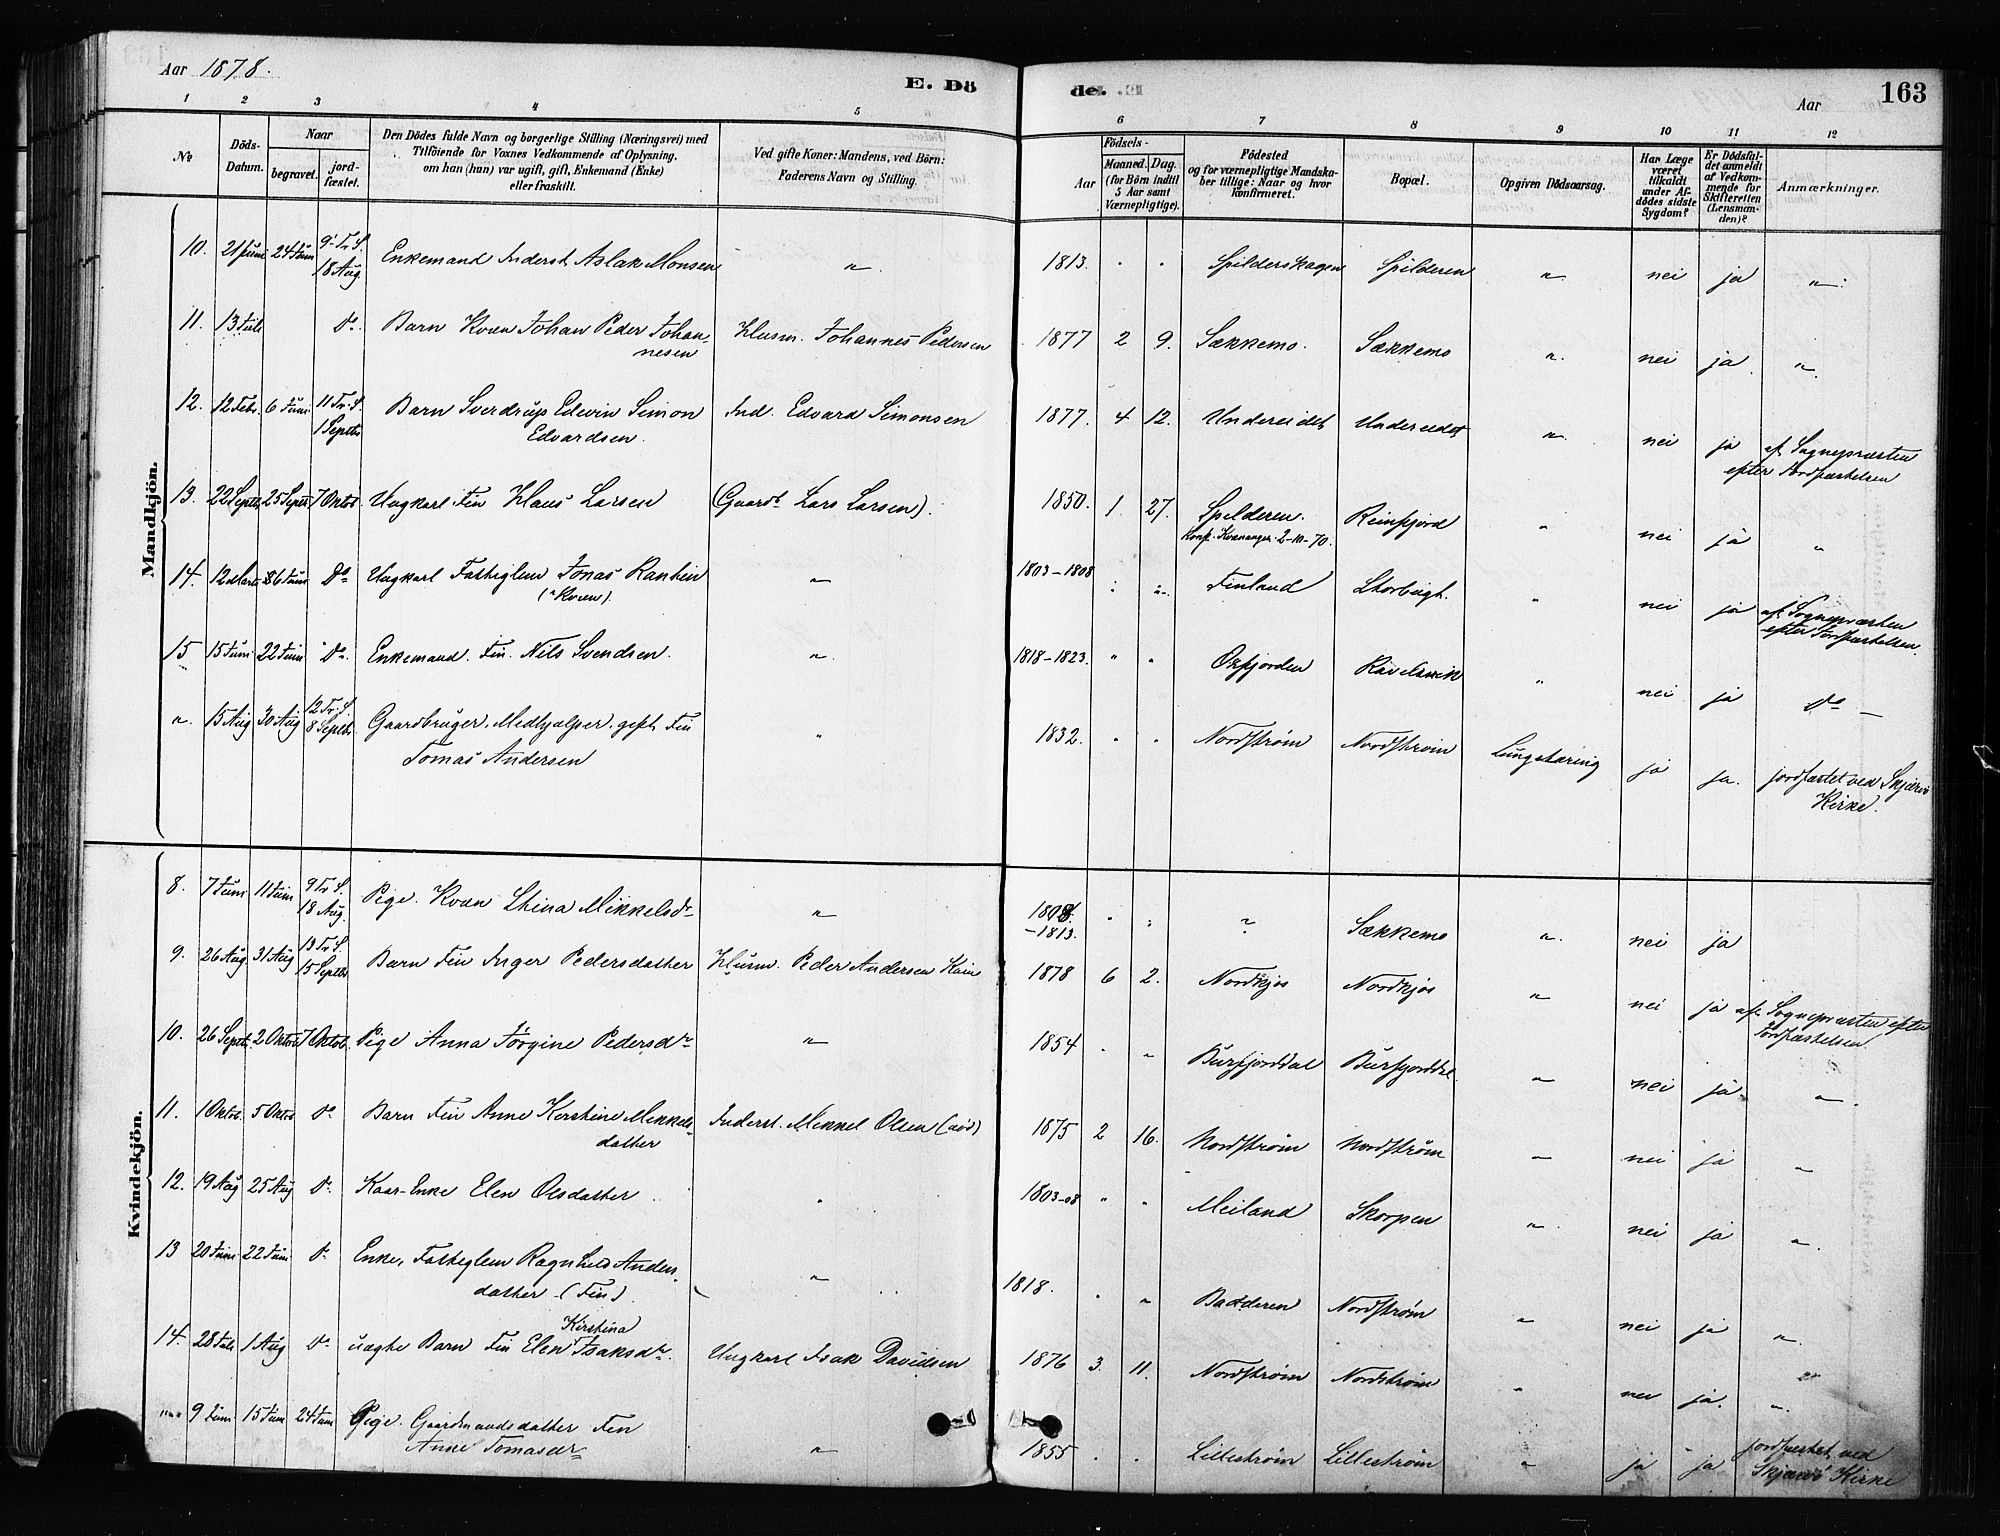 Aar 1878.
E. Dö
de.
Aar
163
1 2 3 4 5 6 7 8 9 10 11 12
No
Döds-
Datum.
Naar
begravet.
jord-
fæstet.
Den Dödes fulde Navn og borgerlige Stilling (Næringsvei) med
Tilföiende for Voxnes Vedkommende af Oplysning,
om han (hun) var ugift, gift, Enkemand (Enke)
eller fraskilt.
Ved gifte Koner: Mandens, ved Börn:
Faderens Navn og Stilling.
Födsels-
Aar
Maaned.
Dag.
(for Börn indtil
5 Aar samt
Værnepligtige).
Födested
og for værnepligtige Mandska-
ber tillige: Naar og hvor
konfirmeret.
Bopæl.
Opgiven Dödsaarsag.
Har Læge
været
tilkaldt
under Af-
dödes sidste
Sygdom?
Er Dödsfal-
det anmeldt
af Vedkom-
mende for
Skifteretten
(Lensman-
den)?
Anmærkninger.
Mandkjön.
10. 21 Juni 24 Juni 9. Tr. S. 18 Aug Enkemand Inderst Aslak Monsen " 1813. " " Spilderskagen Spilderen " nei ja "
11. 13 Juli Do. Barn Kvæn Johan Peder Johan-
nesen Husm. Johannes Pedersen 1877 2 9. Sækkemo. Sækkemo " nei ja "
12. 12 Febr. 6 Juni 11 Tr. S. 1 Septbr Barn Sverdrup Edevin Simon
Edvardsen. Ind. Edvard Simonsen 1877. 4 12. Undereidet Undereidet " nei ja af Sognepræsten
efter Jordfæstelsen
13. 22 Septb. 25 Septb 7 Oktob Ungkarl Fin Klaus Larsen (Gaardb. Lars Larsen). 1850. 1. 27. Spilderen.
Konf. Kvænanger 2-10-70. Reinfjord " nei ja "
14. 12 Marts 6 Juni Do Ungkarl Fattiglem Jonas Rantien
(Kvæn). " 1803-1808 " " Finland Storbugt. " nei ja af Sognepræsten
efter Jordfæstelsen.
15 15 Juni 22 Juni Do. Enkemand. Fin. Nils Svendsen. " 1818-1823. " " Oxfjorden Ravelsvik " nei ja Do
" 15 Aug 30 Aug 12 Tr. S. 8 Septbr. Gaardbruger, Medhjælper, gift, Fin
Tomas Andersen " 1832. " " Nordstrøm Nordstrøm Lungetæring ja ja. jordfæstet ved Skjærvø
Kirke.
Kvindekjön.
8. 7 Juni 11 Juni 9 Tr S. 18 Aug. Pige. Kvæn Stina Mikkelsdr " 1808
-1813. " " " Sækkemo " nei ja
9. 26 Aug. 31 Aug 13 Tr S. 15 Septbr Barn Fin Inger Pedersdatter Husm. Peder Andersen 1878 6 2. Nordkjos Nordkjos " nei ja af Sognepræsten efter
Jordfæstelsen.
10. 26 Septb. 2 Oktob 7 Oktob. Pige Anna Jørgine Pedersdr " 1854 " " Burfjorddal Burfjorddal " nei ja "
11. 1 Oktob. 5 Oktob Do Barn Fin Anne Kirstine Mikkels-
datter Inderst. Mikkel Olsen (død) 1875 2 16. Nordstrøm Nordstrøm " nei ja "
12. 19 Aug 25 Aug Do. Kaar-Enke Elen Olsdatter " 1803-08 " " Meiland Skorpen " nei ja "
13 20 Juni 22 Juni Do Enke, Fattiglem Ragnhild Anders-
datter (Fin). " 1818. " " Badderen Nordstrøm " nei ja "
14. 28 Juli 1 Aug Do uægte Barn Fin Elen Kirstina Isaksdr. Ungkarl Isak Davidsen 1876 3. 11. Nordstrøm Nordstrøm " nei ja. "
" 9 Juni 15 Juni 24 Juni Pige. Gaardmandsdatter Fin
Anne Tomasdr " 1855 " " Lillestrøm Lillestrøm " ja ja jordfæstet ved
Skjærvø Kirke